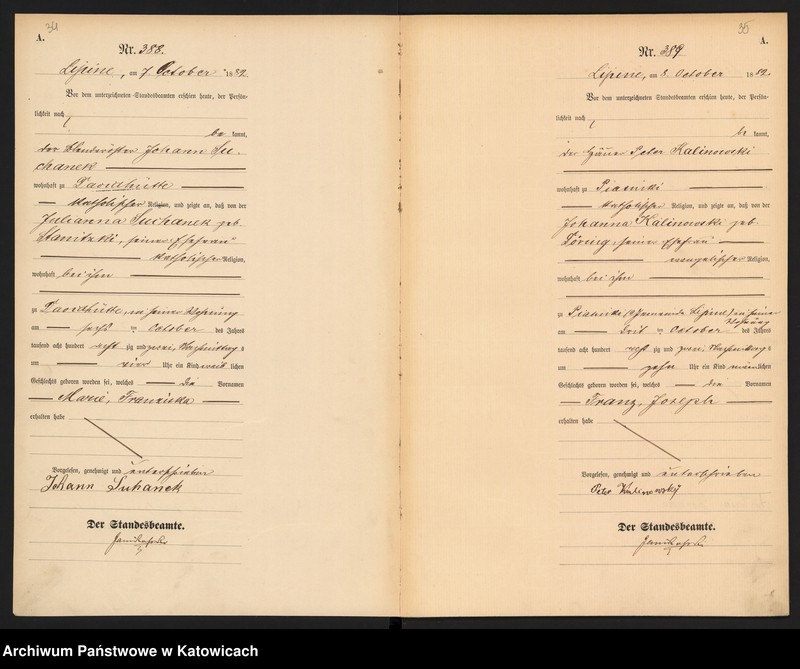 34
A.
Nr. 388.
Lipine, am 7 October 1882.
Vor dem unterzeichneten Standesbeamten erschien heute, der Persön-
lichkeit nach
be kannt,
der Johann Su-
chanek
wohnhaft zu
katholischer Religion, und zeigte an, daß von der
Julianna Suchanek geb.
Stanitzki, seiner Ehefrau
katholischer Religion,
wohnhaft bei ihm
zu in seiner Wohnung
am sechs ten October des Jahres
tausend acht hundert acht zig und zwei, Nachmittags
um vier Uhr ein Kind weib lichen
Geschlechts geboren worden sei, welches die Vornamen
Marie, Franziska
erhalten habe
Vorgelesen, genehmigt und unterschrieben
Johann Suhanek
Der Standesbeamte.
35
A.
Nr. 389.
Lipine, am 8. October 1882.
Vor dem unterzeichneten Standesbeamten erschien heute, der Persön-
lichkeit nach
be kannt,
der Peter Kalinowski
wohnhaft zu Piasniki
katholischer Religion, und zeigte an, daß von der
Johanna Kalinowski geb.
Döring, seiner Ehefrau
evangelischer Religion,
wohnhaft bei ihm
zu Piasniki (Gemeinde Lipine) in seiner
Wohnung
am drit ten October des Jahres
tausend acht hundert acht zig und zwei, Nachmittags
um zehn Uhr ein Kind männlichen
Geschlechts geboren worden sei, welches die Vornamen
Franz, Joseph
erhalten habe
Vorgelesen, genehmigt und unterschrieben
Peter Kalinowsky
Der Standesbeamte.
Archiwum Państwowe w Katowicach